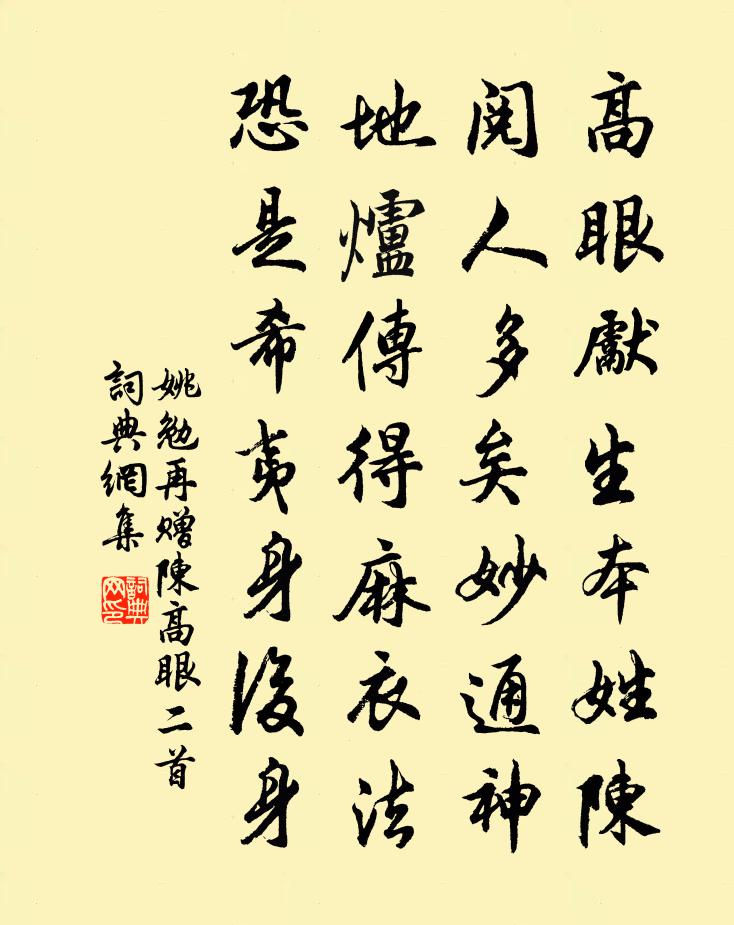 高眼獻生本姓陳
閱人多矣妙通神
地爐傳得麻衣法
恐是希夷身後身
姚勉再贈陳高眼二首
詞典網集
詞典网印